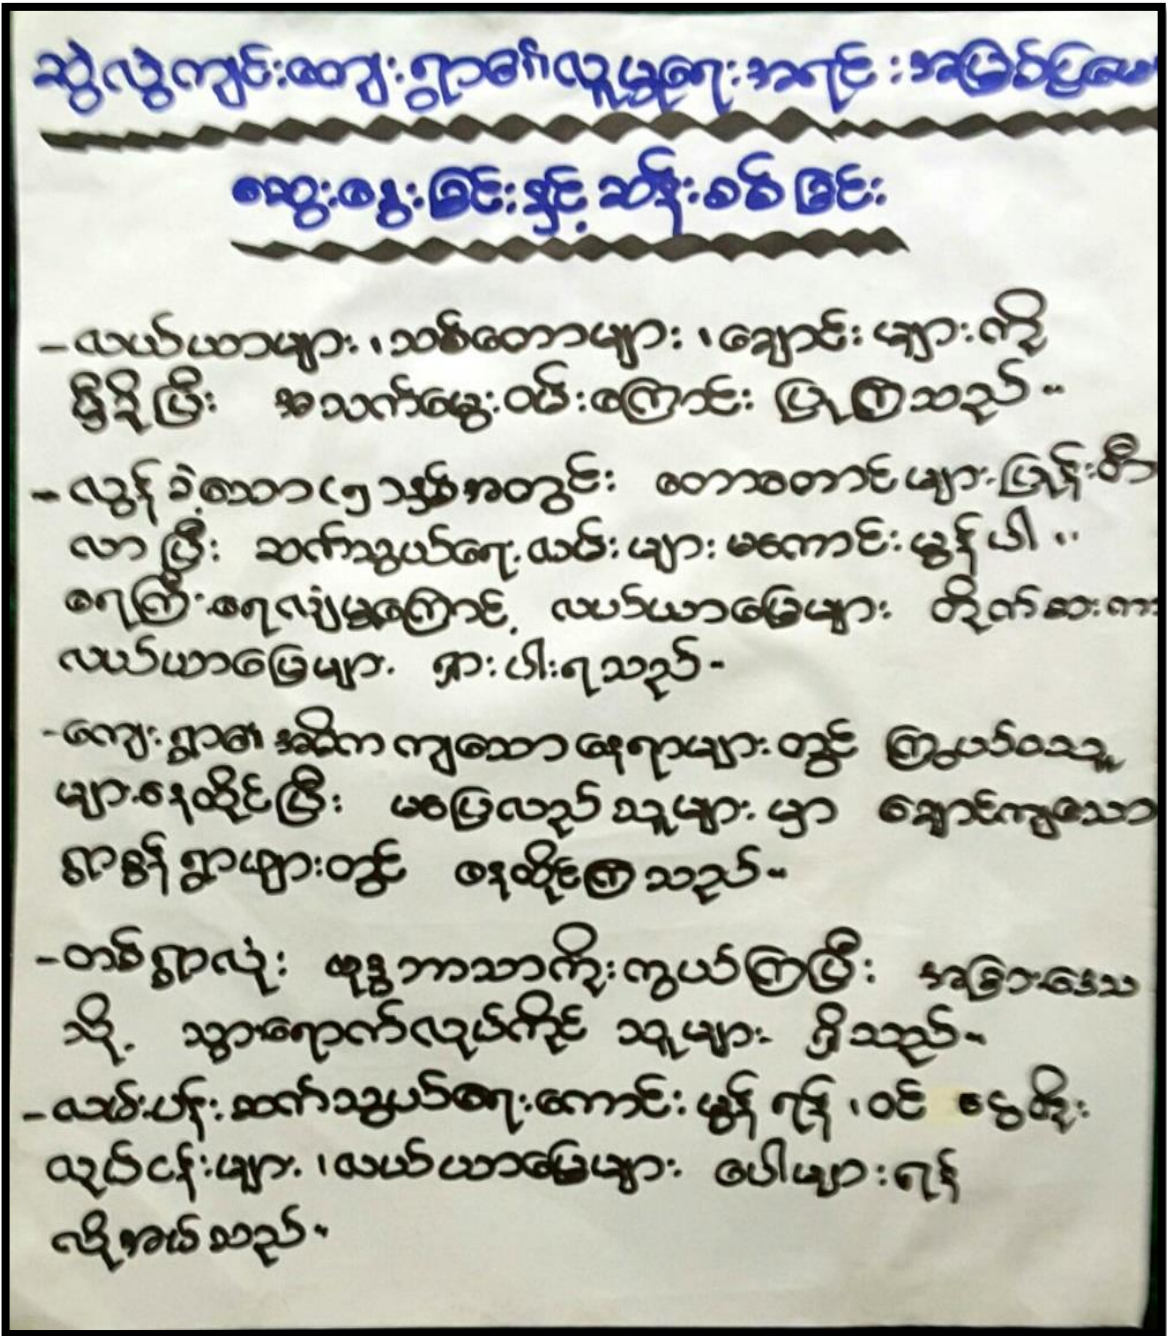 သွဲလွဲကျင်းကျေးရွာ၏လူမှုရေးအရင်းအမြစ်ပြမြေ
ဆွေးနွေးခြင်းနှင့်ဆန်းစစ်ခြင်း
- လယ်ယာများ၊သစ်တောများ၊ချောင်းများကို
မှီခိုပြီး အသက်မွေးဝမ်းကြောင်း ပြုကြသည်။
- လွန်ခဲ့သော(၅)နှစ်အတွင်း တောတောင်များပြုန်းတီး
လာပြီး ဆက်သွယ်ရေးလမ်းများမကောင်းမွန်ပါ။
ရေကြီးရေလျှံမှုကြောင့် လယ်ယာမြေများ တိုက်စားကာ
လယ်ယာမြေများ ရှားပါးရသည်။
- ကျေးရွာ၏အဓိကကျသောနေရာများတွင် ကြွယ်ဝသူ
များနေထိုင်ပြီး မပြေလည်သူများမှာ ချောင်ကျသော
ရွာစွန်ရွာဖျားတွင် နေထိုင်ကြသည်။
- တစ်ရွာလုံး ဗုဒ္ဓဘာသာကိုးကွယ်ကြပြီး အခြားဒေသ
သို့ သွားရောက်လုပ်ကိုင်သူများ ရှိသည်။
- လမ်းပန်းဆက်သွယ်ရေးကောင်းမွန်ရန်၊ဝင်ငွေတိုး
လုပ်ငန်းများ၊လယ်ယာမြေများ ပေါများရန်
လိုအပ်သည်။